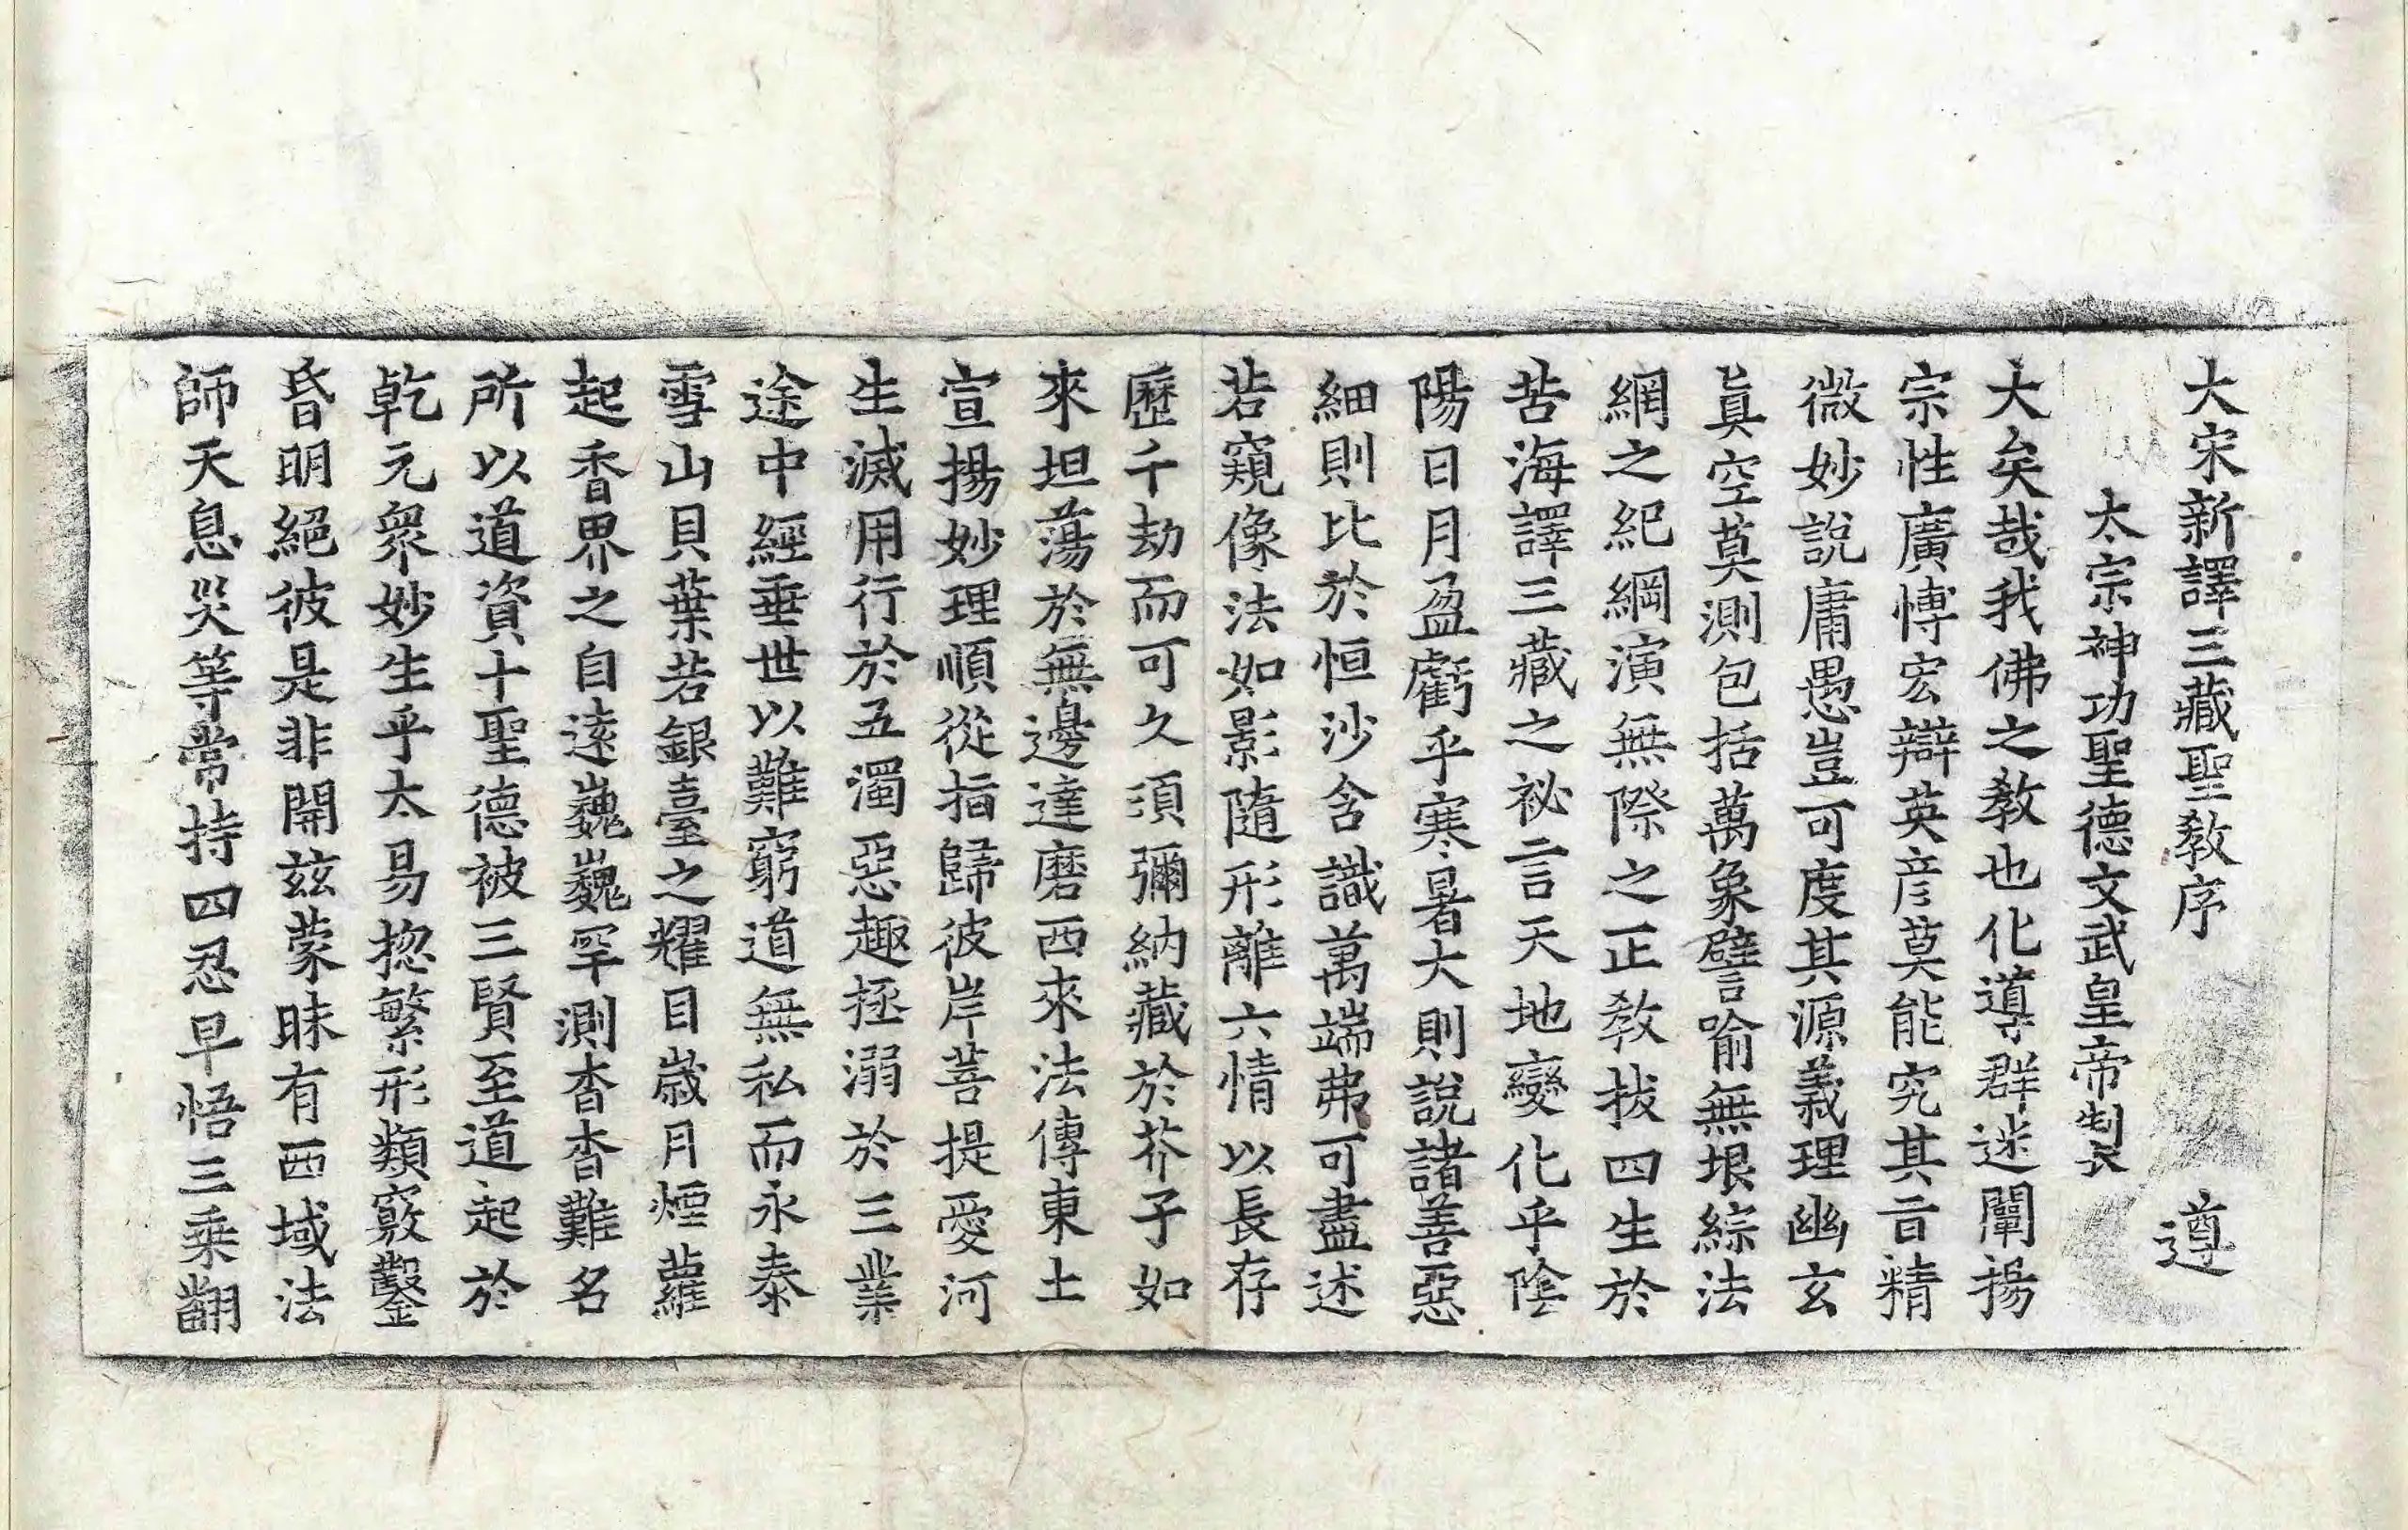 大宋新譯三藏聖敎序 遵
太宗神功聖德文武皇帝製
大矣哉我佛之敎也化導群迷闡揚
宗性廣愽宏辯英彦莫能究其㫖精
微妙說庸愚豈可度其源義理幽玄
眞空莫測包括萬象譬喻無垠綜法
網之紀綱演無際之正敎拔四生於
苦海譯三藏之祕言天地變化乎陰
陽日月盈虧乎寒暑大則說諸善惡
細則比於恒沙含識萬端弗可盡述
若窺像法如影隨形離六情以長存
歷千劫而可久須彌納藏於芥子如
來坦蕩於無邊達磨西來法傳東土
宣揚妙理順從指歸彼岸菩提愛河
生滅用行於五濁惡趣拯溺於三業
途中經垂世以難窮道無私而永泰
雪山貝葉若銀臺之耀目歲月煙蘿
起香界之自遠巍巍罕測杳杳難名
所以道資十聖德被三賢至道起於
乾元衆妙生乎太易揔繁形類竅鑿
昏明絕彼是非開茲蒙昧有西域法
師天息災等常持四忍早悟三乘翻